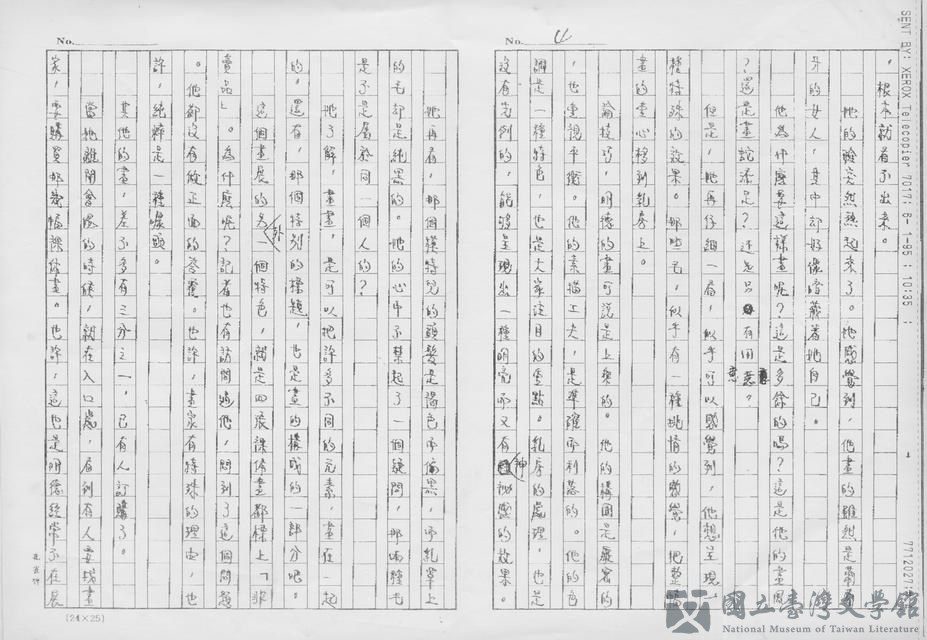 SENT BY: XEROX Telecopier 7017; 8- 1-95 ; 10:35 ;
7712027;
No. 4
，根本就看不出來。
她的臉突然熱起來了。她感覺到，他畫的雖然是
牙的女人，其中却好像暗藏着她自己。
他為什麼要這樣畫呢？這是多餘的嗎？這是他的畫風
？還是畫蛇添足？還是另有用意？
但是，她再仔細一看，似乎可以感覺到，他想呈現一
種特殊的效果。那些毛，似乎有一種挑情的感覺，把整幅
畫的重心移到乳房上。
論技巧，明德的畫可說是上乘的。他的構圖是嚴密的
，也重視平衡。他的素描工夫，是準確而利落的。他的色
調是一種特色，也是大家注目的重點。乳房的處理，也是
沒有先例的，能夠呈現出一種明亮而又有神祕感的效果。
No.
她再看，那個模特兒的頭髮是褐色而偏黑，而乳罩上
的毛却是純黑的。她的心中不禁起了一個疑問，那兩種毛
是不是屬於同一個人的？
她了解，畫畫，是可以把許多不同的元素，畫在一起
的。還有，那個特別的標題，也是畫的構成的一部分吧。
這個畫展的另外一個特色，就是四張裸体畫都標上「非
賣品」。為什麼呢？記者也有訪問過他，問到了這個問題
。他都沒有做正面的答覆。也許，畫家有特殊的理由，也
許，純粹是一種噱頭。
其他的畫，差不多有三分之一，已有人訂購了。
當她離開會場的時候，就在入口處，看到有人要找畫
家，要購買那幾幅裸体畫。也許，這也是明德經常不在展
(24×25)
國立臺灣文學館
National Museum of Taiwan Literature